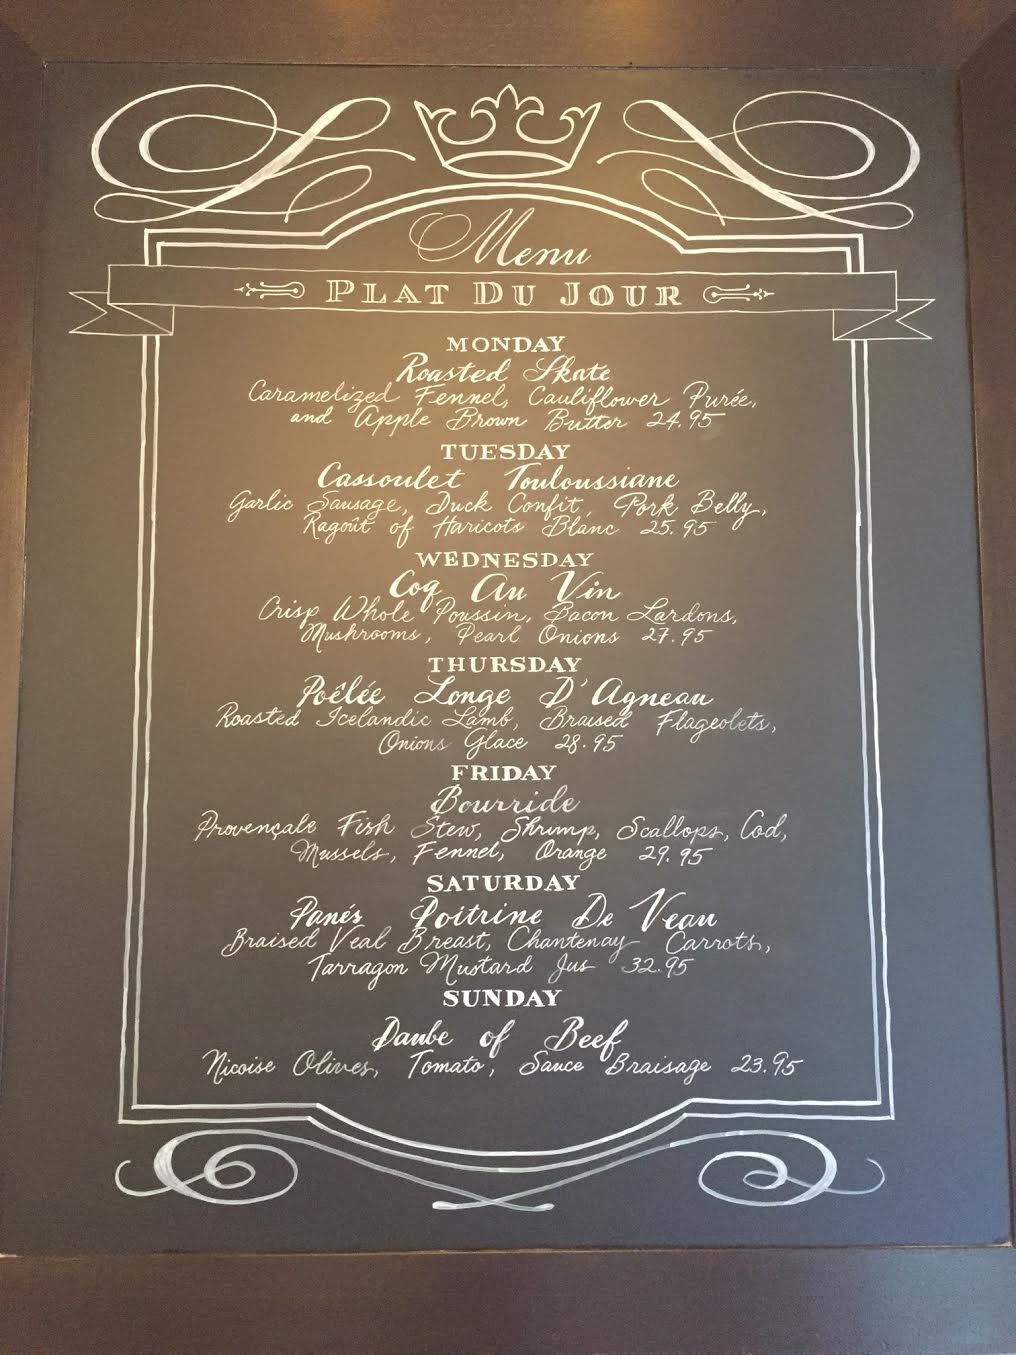 Menu
PLAT DU JOUR
MONDAY
Roasted Skate
Caramelized Fennel, Cauliflower Purée,
and Apple Brown Butter 24.95
TUESDAY
Cassoulet Touloussiane
Garlic Sausage, Duck Confit, Pork Belly,
Ragoût of Haricots Blanc 25.95
WEDNESDAY
Coq Au Vin
Crisp Whole Poussin, Bacon Lardons,
Mushrooms, Pearl Onions 27.95
THURSDAY
Poêlée Longe D'Agneau
Roasted Icelandic Lamb, Braised Flageolets,
Onions Glace 28.95
FRIDAY
Bourride
Provençale Fish Stew, Shrimp, Scallops, Cod,
Mussels, Fennel, Orange 29.95
SATURDAY
Panés Poitrine De Veau
Braised Veal Breast, Chantenay Carrots,
Tarragon Mustard Jus 32.95
SUNDAY
Daube of Beef
Nicoise Olives, Tomato, Sauce Braisage 23.95